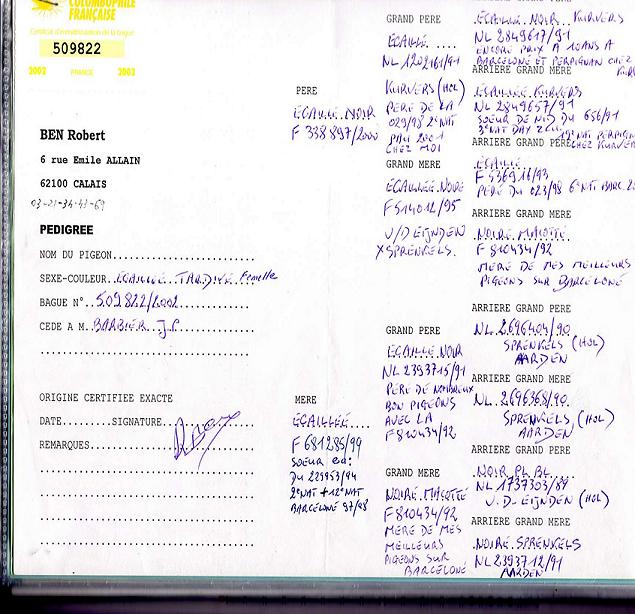 COLOMBOPHILE
FRANÇAISE
Certificat d'immatriculation de la bague
509822
2002 FRANCE 2003
BEN Robert
6 rue Emile ALLAIN
62100 CALAIS
03-21-34-43-69
PEDIGREE
NOM DU PIGEON
SEXE-COULEUR ECAILLÉE TARDIVE Femelle
BAGUE N°. 509822/2002
CEDE A M. BARBIER J.P
ORIGINE CERTIFIEE EXACTE
DATE SIGNATURE
REMARQUES
PERE
ECAILLE NOIR
F 338897/2000
MERE
ECAILLÉE
F 681285/99
SOEUR
DU 229953/94
2°NAT + 12°NAT
BARCELONE 97/98
GRAND PERE
ECAILLÉ
NL 1202161/91
KURVERS (HOL)
PERE DE LA
029/98 2°NAT
PAU 2001
CHEZ MOI
GRAND MERE
ECAILLÉE NOIRE
F 514012/95
V/D EIJNDEN
X SPRENKELS
GRAND PERE
ECAILLÉ NOIR
NL 2393715/91
PERE DE NOMBREUX
BON PIGEONS
AVEC LA
F 810434/92
GRAND MERE
NOIRE MALOTTE
F 810434/92
MERE DE MES
MEILLEURS
PIGEONS SUR
BARCELONE
ECAILLÉ NOIR KURVERS
NL 2849617/91
ENCORE PRIX A 10ANS A
BARCELONE ET PERPIGNAN CHEZ
KURVERS
ARRIERE GRAND MERE
ECAILLÉE KURVERS
NL 2849657/91
SOEUR DE NID DU 656/91
3°NAT DAX
1°NAT PERPIGNAN
CHEZ KURVERS
ARRIERE GRAND PERE
ECAILLÉ
F 536916/93
PERE DU 023/98 6°NAT BARC.
ARRIERE GRAND MERE
NOIRE MALOTTE
F 810434/92
MERE DE MES MEILLEURS
PIGEONS SUR BARCELONE
ARRIERE GRAND PERE
NL 2696404/90
SPRENKELS (HOL)
AARDEN
ARRIERE GRAND MERE
NL 2696368/90
SPRENKELS (HOL)
AARDEN
ARRIERE GRAND PERE
NOIR PL BL
NL 1737303/89
V.D-EIJNDEN (HOL)
ARRIERE GRAND MERE
NOIRE SPRENKELS
NL 2393712/91
AARDEN